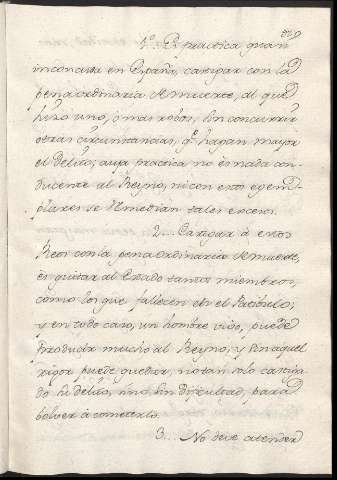 1º. Es practica quasi
inconcusa en España, castigar con la
pena ordinaria de muerte, al que
hizo uno, ò mas robos, sin concurrir
otras circunstancias, qe. hagan mayor
el delito; cuya practica no es nada con-
ducente al Reyno, ni con estos egem-
plares se remedian tales excesos.
2... Castigar à estos
Reos con la pena ordinaria de muerte,
es quitar al Estado tantos miembros,
como los que fallecen en el Patibulo;
y en todo caso, un hombre vivo, puede
producir mucho al Reyno; y sin aquel
rigor puede quedar, no tan solo castiga-
do su delito, sino, sin dificultad, para
bolver à cometerlo.
3... No deve atender